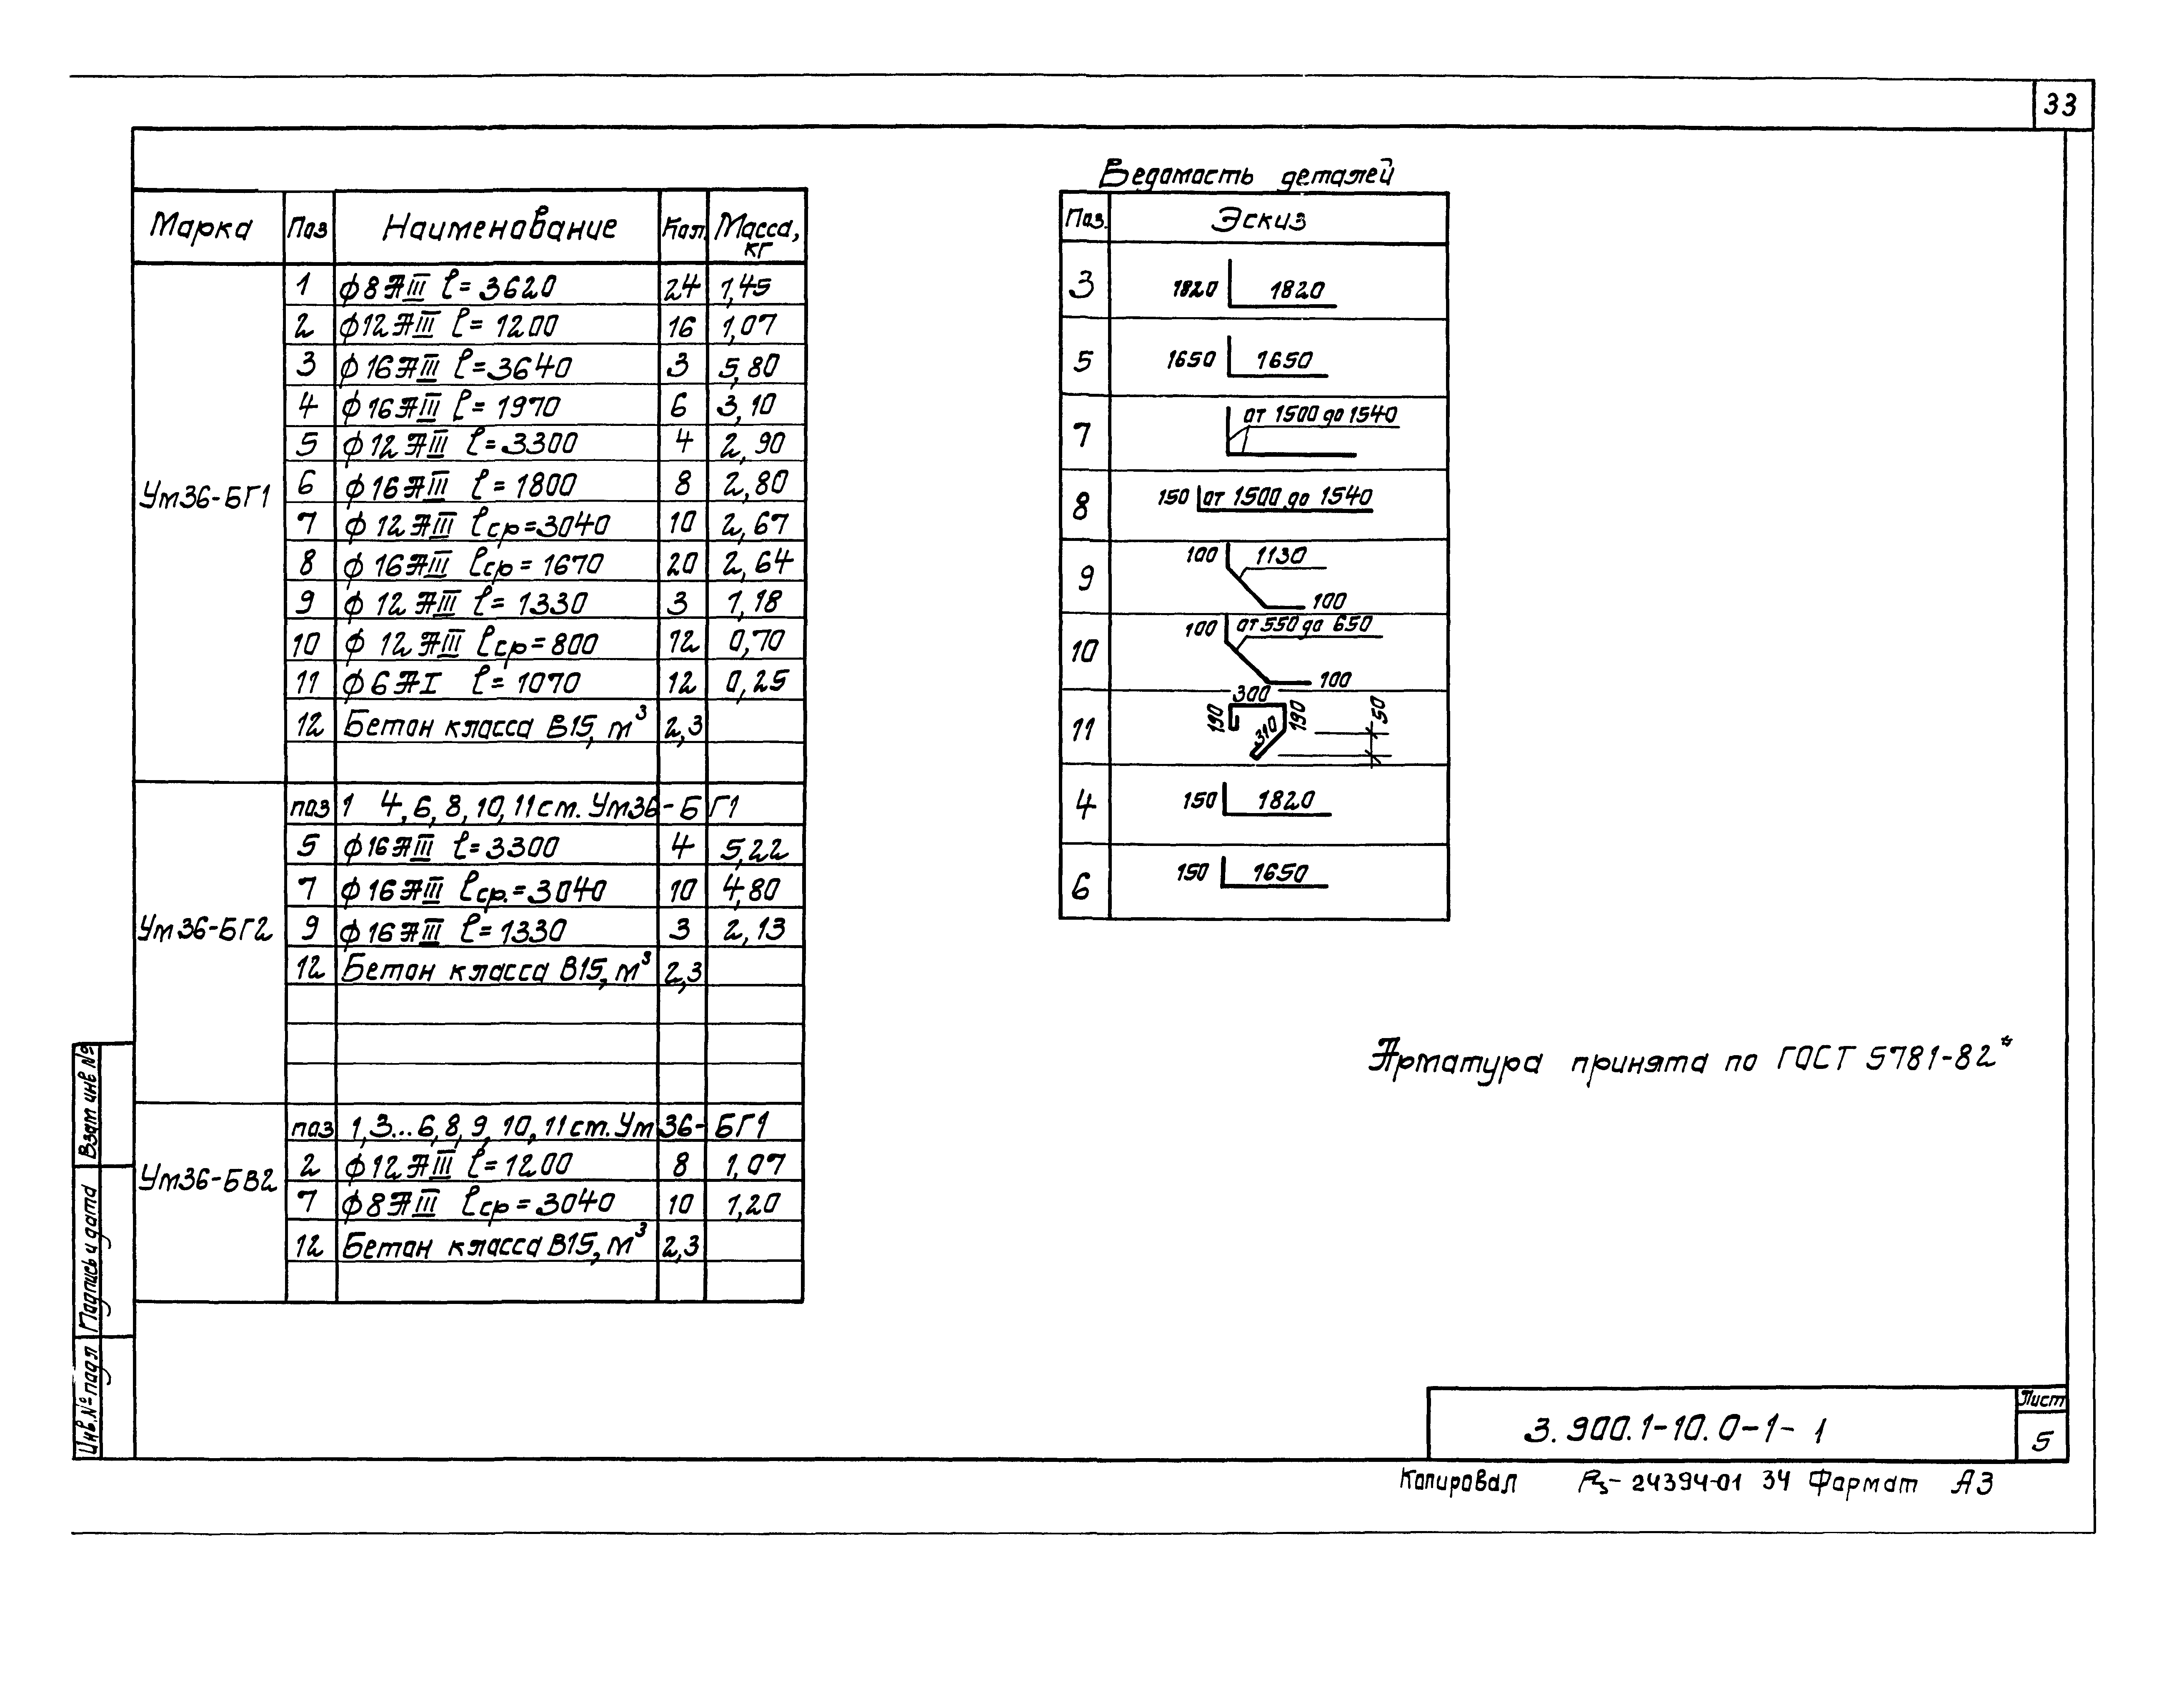 33
Марка Поз Наименование Кол. Масса, кг
Ум36-БГ1
1 ф8АIII ℓ=3620 24 1,45
2 ф12АIII ℓ=1200 16 1,07
3 ф16АIII ℓ=3640 3 5,80
4 ф16АIII ℓ=1970 6 3,10
5 ф12АIII ℓ=3300 4 2,90
6 ф16АIII ℓ=1800 8 2,80
7 ф12АIII ℓср=3040 10 2,67
8 ф16АIII ℓср=1670 20 2,64
9 ф12АIII ℓ=1330 3 1,18
10 ф12АIII ℓср=800 12 0,70
11 ф6АI ℓ=1070 12 0,25
12 Бетон класса В15, м³ 2,3
Ум36-БГ2
поз 1 4,6,8,10,11 ст. Ум36-БГ1
5 ф16АIII ℓ=3300 4 5,22
7 ф16АIII ℓср.=3040 10 4,80
9 ф16АIII ℓ=1330 3 2,13
12 Бетон класса В15, м³ 2,3
Ум36-БВ2
поз 1,3...6,8,9,10,11 ст. Ум36-БГ1
2 ф12АIII ℓ=1200 8 1,07
7 ф8АIII ℓср=3040 10 1,20
12 Бетон класса В15, м³ 2,3
Ведомость деталей
Поз. Эскиз
3 1820 1820
5 1650 1650
7 от 1500 до 1540
8 150 от 1500 до 1540
9 100 1130 100
10 100 от 550 до 650 100
11 300 190 190 310 50
4 150 1820
6 150 1650
Арматура принята по ГОСТ 5781-82*
Взам инв №
Подпись и дата
Инв.№ подл
3.900.1-10.0-1-1
Лист
5
Копировал 24394-01 34 Формат А3